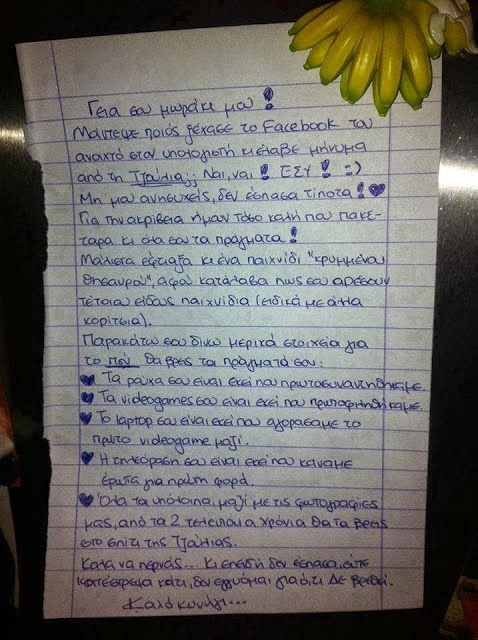 Γεια σου μωράκι μου!
Μάντεψε ποιός ξέχασε το Facebook του
ανοιχτό στον υπολογιστή κι έλαβε μήνυμα
από τη Τζούλια;; Ναι, ναι! ΕΣΥ! :)
Μη μου ανησυχείς, δεν έσπασα τίποτα! ♥
Για την ακρίβεια ήμουν τόσο καλή που πακέ-
ταρα κι όλα σου τα πράγματα!
Μάλιστα έφτιαξα κι ένα παιχνίδι "κρυμμένου
θησαυρού", αφού κατάλαβα πως σου αρέσουν
τέτοιου είδους παιχνίδια (ειδικά με άλλα
κορίτσια).
Παρακάτω σου δίνω μερικά στοιχεία για
το πού θα βρεις τα πράγματά σου:
♥ Τα ρούχα σου είναι εκεί που πρωτοσυναντηθήκαμε.
♥ Τα videogames σου είναι εκεί που πρωτοφιληθήκαμε.
♥ Το laptop σου είναι εκεί που αγοράσαμε το
πρώτο videogame μαζί.
♥ Η τηλεόραση σου είναι εκεί που κάναμε
έρωτα για πρώτη φορά.
♥ Όλα τα υπόλοιπα, μαζί με τις φωτογραφίες
μας, από τα 2 τελευταία χρόνια θα τα βρεις
στο σπίτι της Τζούλιας.
Καλά να περνάς... Κι επειδή δεν έσπασα, ούτε
κατέστρεψα κάτι, δεν εγγυώμαι για ό,τι δε βρεθεί.
Καλό κυνήγι...